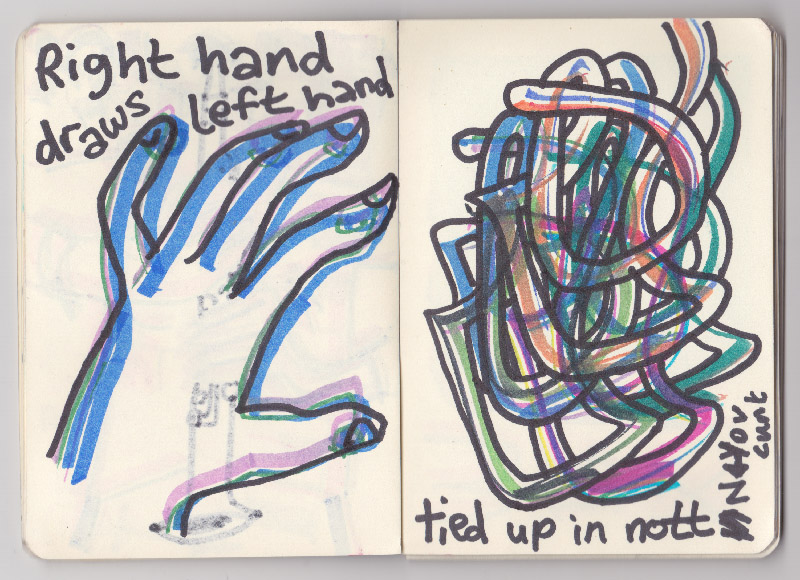 Right hand
draws left hand
tied up in nott
You
cunt